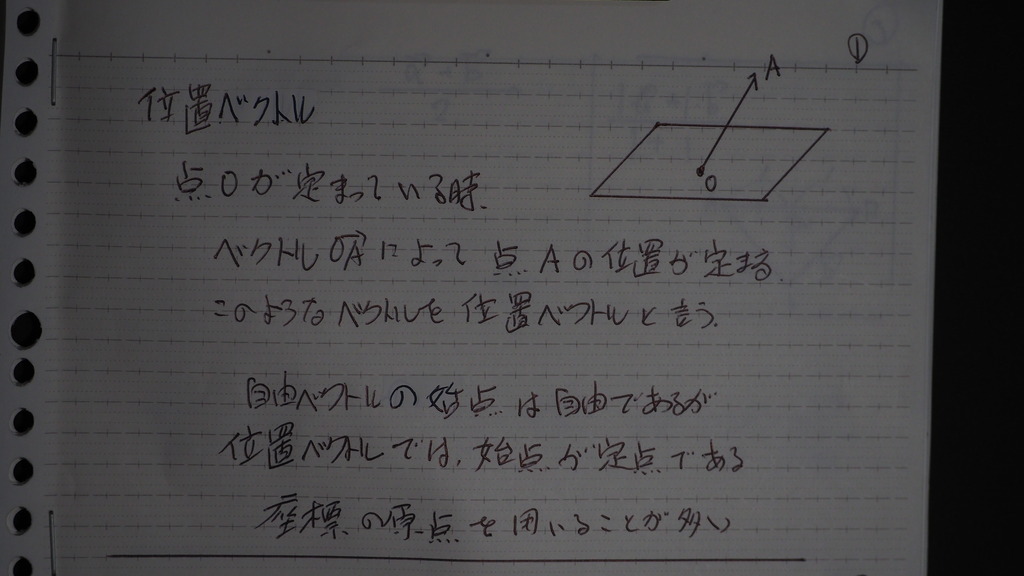 ①
A
O
位置ベクトル
点Oが定まっている時、
ベクトルOA→によって 点Aの位置が定まる.
このようなベクトルを位置ベクトルと言う.
自由ベクトルの始点は自由であるが
位置ベクトルでは、始点が定点である
座標の原点を用いることが多い